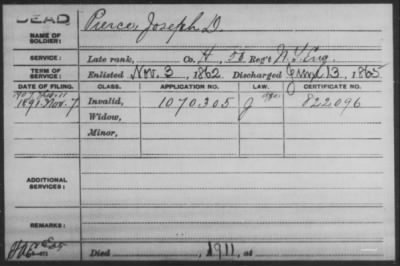 DEAD
NAME OF SOLDIER: Pierce, Joseph D.
SERVICE: Late rank, Co. H, 50 Reg't N.Y. Eng.
TERM OF SERVICE: Enlisted Nov. 3, 1862 Discharged June 13, 1865
DATE OF FILING. CLASS. APPLICATION NO. LAW. CERTIFICATE NO.
1891 Nov. 7 Invalid, 1070305 J 822096
Widow,
Minor,
ADDITIONAL SERVICES:
REMARKS:
Died , 1911, at